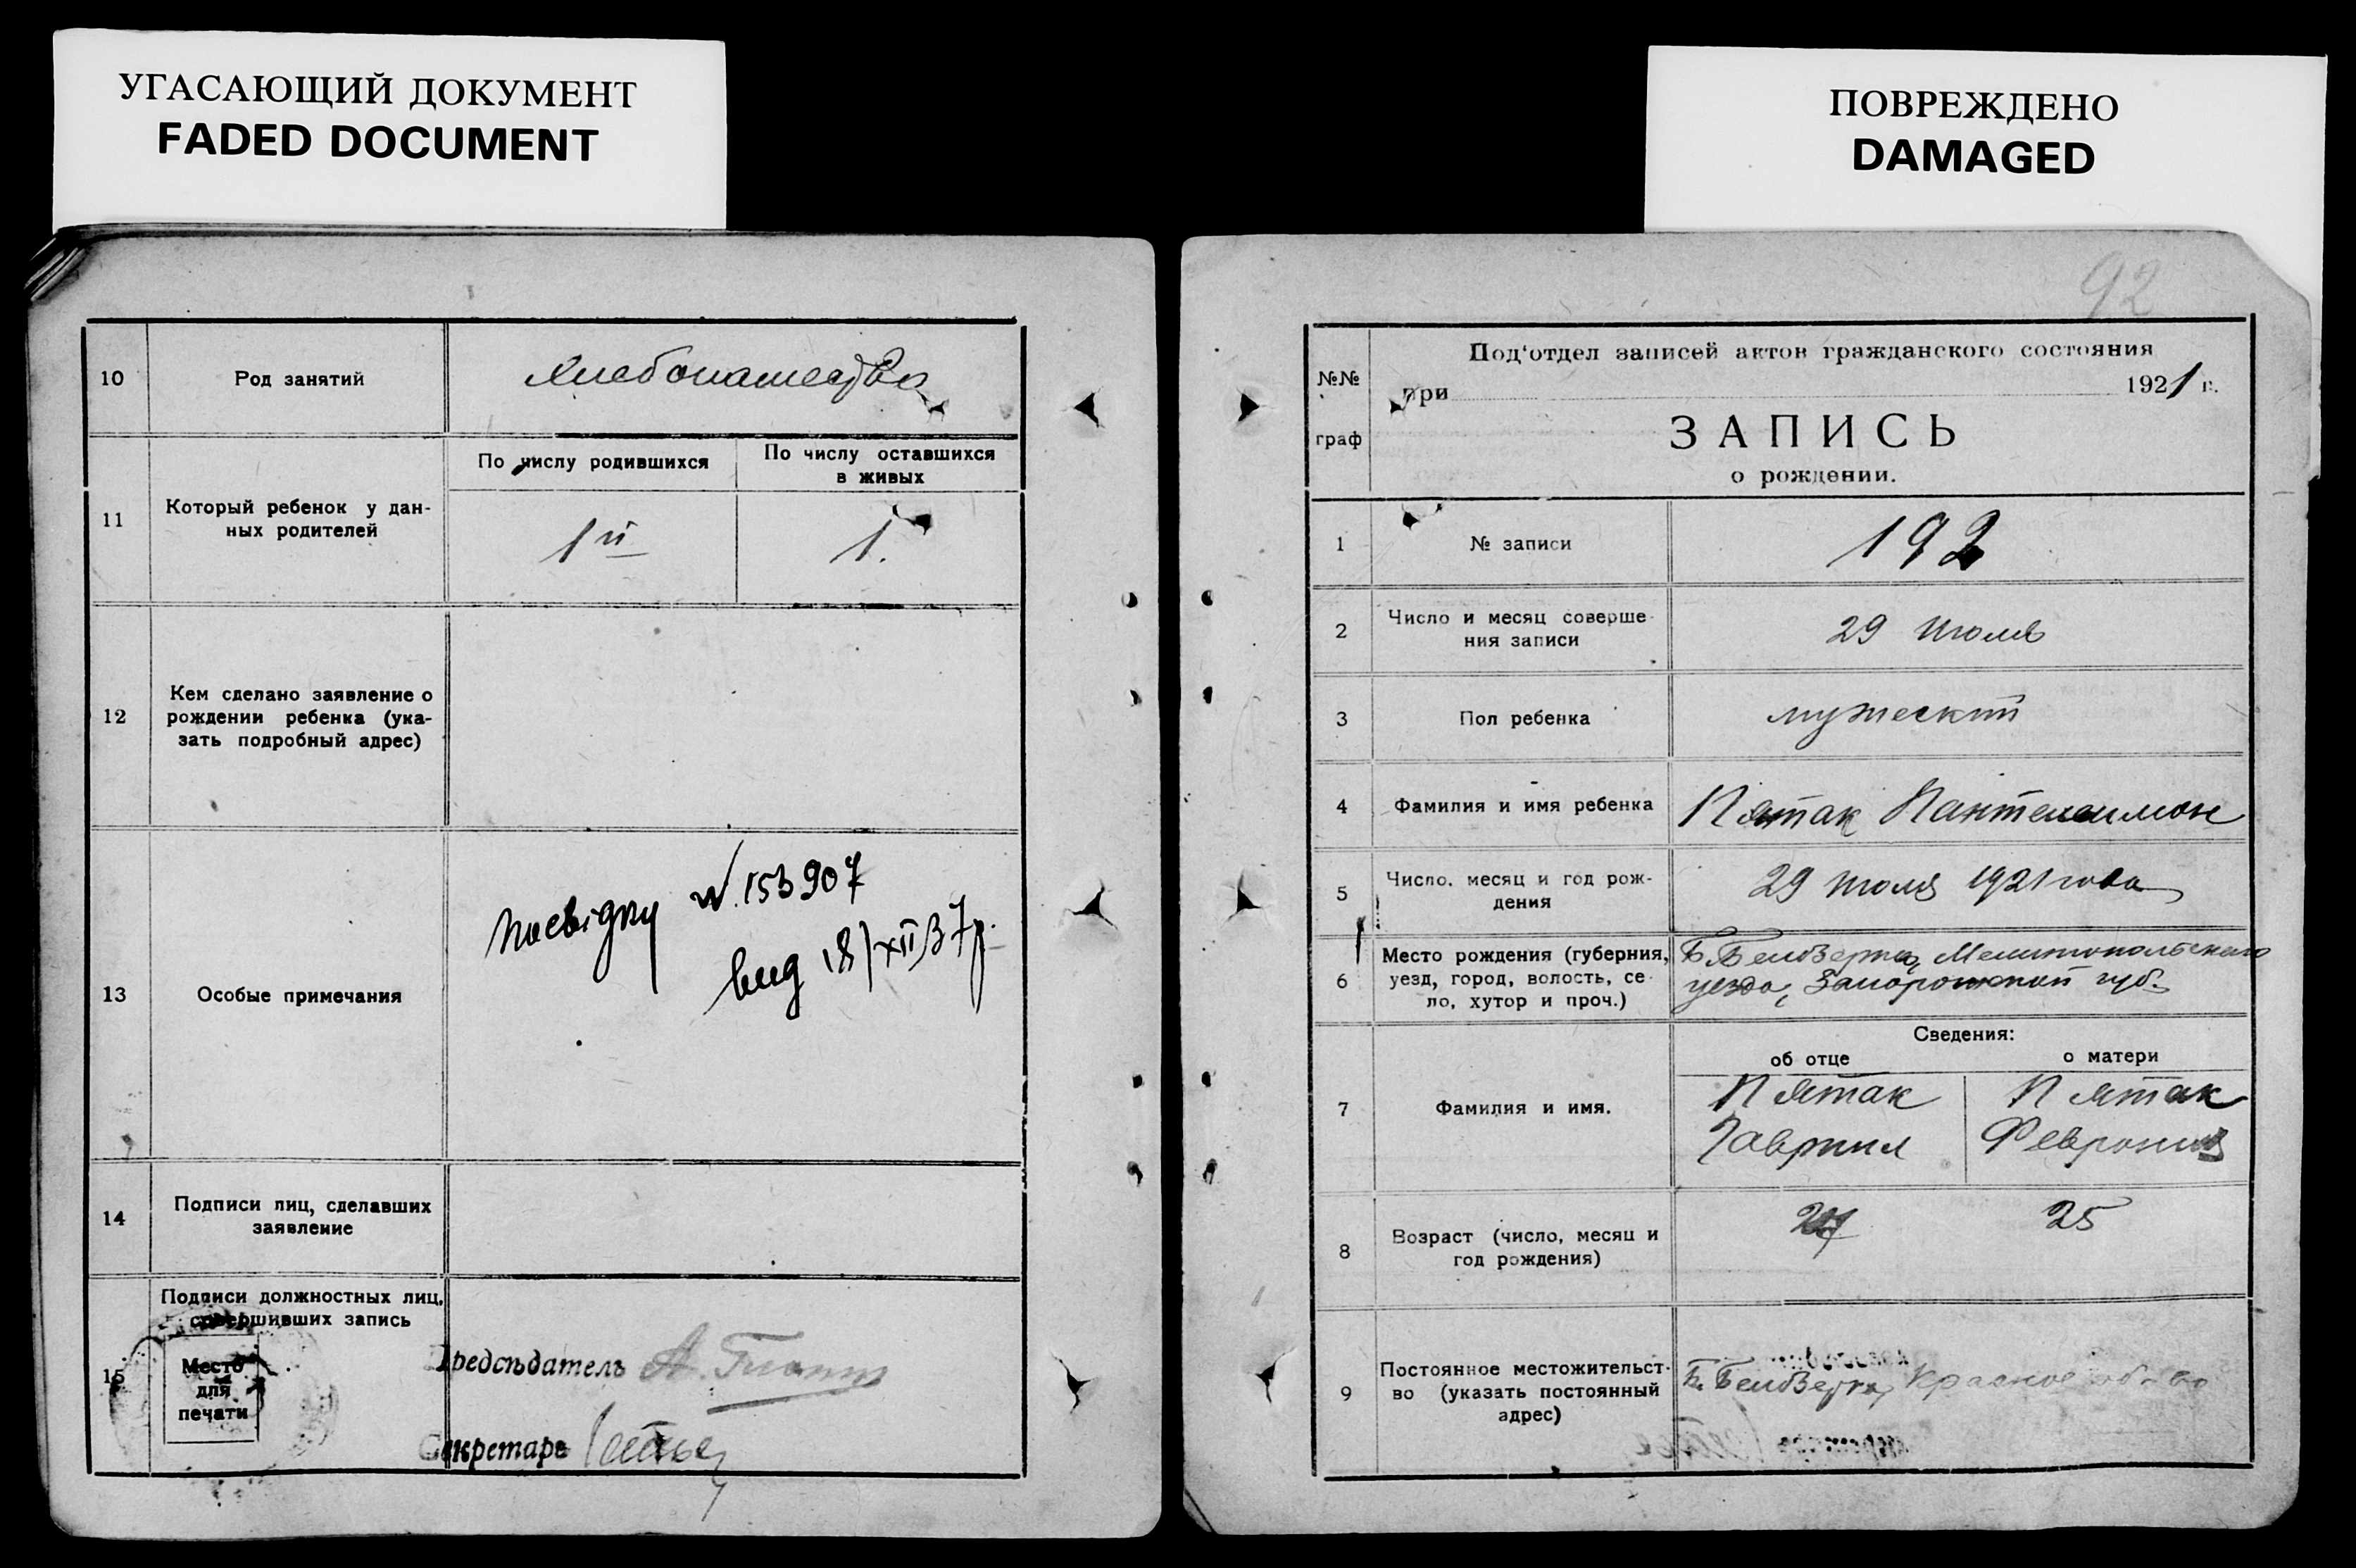 УГАСАЮЩИЙ ДОКУМЕНТ
FADED DOCUMENT
ПОВРЕЖДЕНО
DAMAGED
10
Род занятий
хлебопашество
11
Который ребенок у дан-
ных родителей
По числу родившихся
По числу оставшихся
в живых
1й
1.
12
Кем сделано заявление о
рождении ребенка (ука-
зать подробный адрес)
13
Особые примечания
посвідку №153907
вид 18/XII 37р.
14
Подписи лиц, сделавших
заявление
15
Подписи должностных лиц,
совершивших запись
Место
для
печати
Предсѣдатель А.
Секретарь
92
№№
граф
Под'отдел записей актов гражданского состояния
при 1921 г.
ЗАПИСЬ
о рождении.
1
№ записи
192
2
Число и месяц соверше-
ния записи
29 Июля
3
Пол ребенка
мужеский
4
Фамилия и имя ребенка
Пятак Пантелеимон
5
Число, месяц и год рож-
дения
29 Июля 1921 года
6
Место рождения (губерния,
уезд, город, волость, се-
ло, хутор и проч.)
Б. Белозерка, Мелитопольского
уезда, Запорожской губ.
Сведения:
об отце
о матери
7
Фамилия и имя.
Пятак
Гавриил
Пятак
Феврония
8
Возраст (число, месяц и
год рождения)
25
9
Постоянное местожительст-
во (указать постоянный
адрес)
Б. Белозерка, Красное об-во